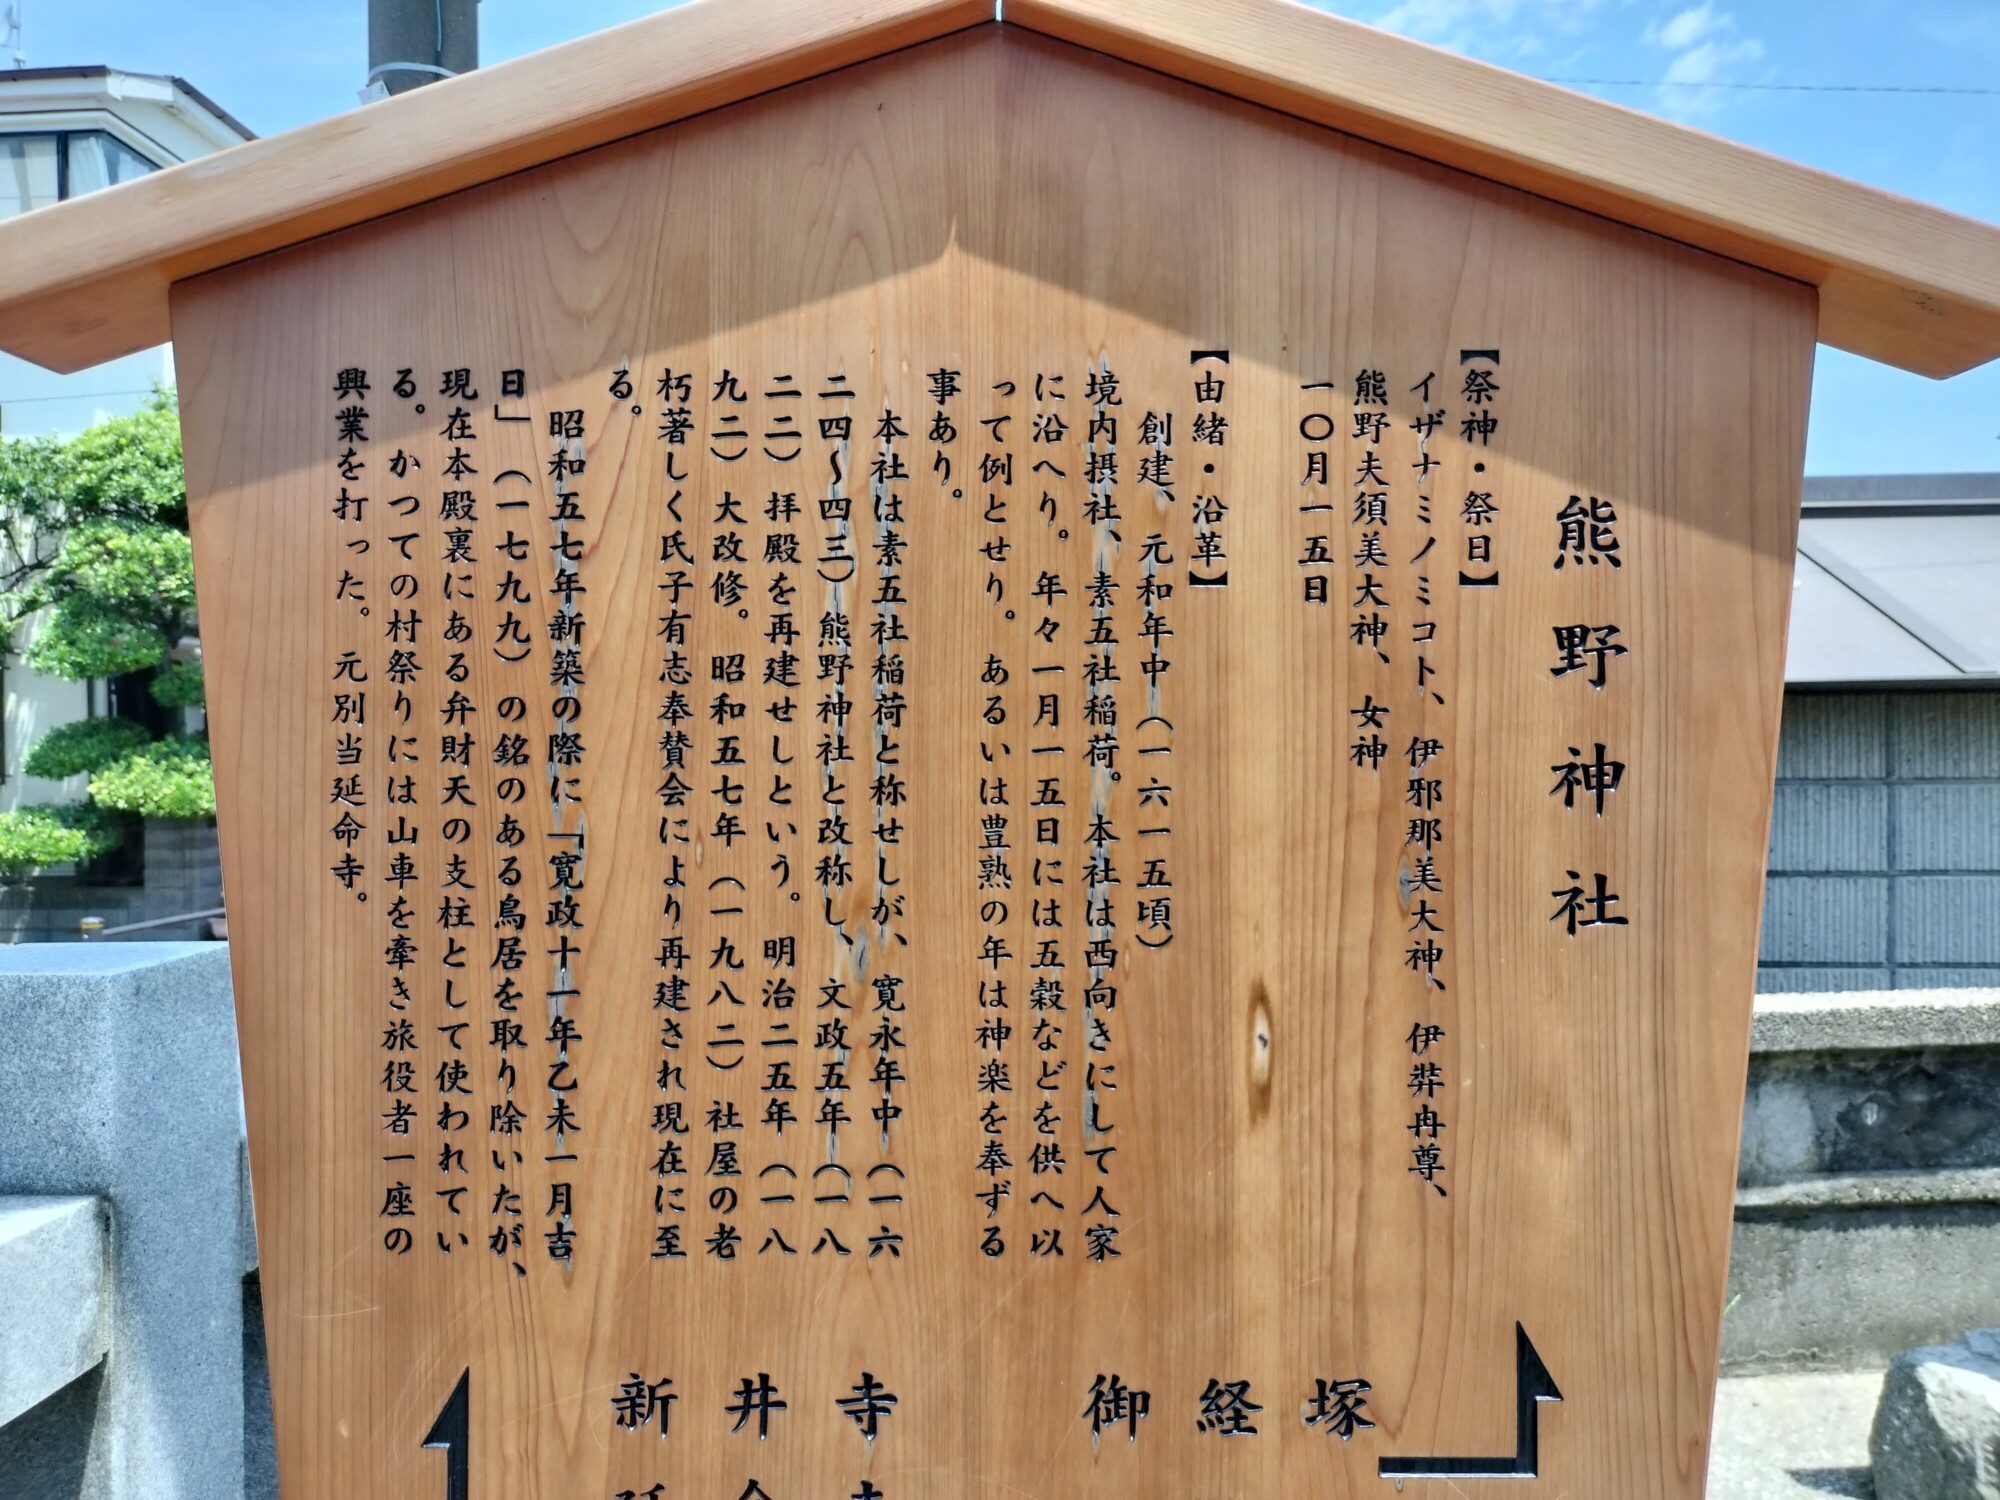 熊野神社
【祭神・祭日】
イザナミノミコト、伊邪那美大神、伊弉冉尊、
熊野夫須美大神、女神
一〇月一五日
【由緒・沿革】
創建、元和年中（一六一五頃）
境内摂社、素五社稲荷。本社は西向きにして人家
に沿へり。年々一月一五日には五穀などを供へ以
って例とせり。あるいは豊熟の年は神楽を奉ずる
事あり。
本社は素五社稲荷と称せしが、寛永年中（一六
二四〜四三）熊野神社と改称し、文政五年（一八
二二）拝殿を再建せしという。明治二五年（一八
九二）大改修。昭和五七年（一九八二）社屋の老
朽著しく氏子有志奉賛会により再建され現在に至
る。
昭和五七年新築の際に「寛政十一年乙未一月吉
日」（一七九九）の銘のある鳥居を取り除いたが、
現在本殿裏にある弁財天の支柱として使われてい
る。かつての村祭りには山車を牽き旅役者一座の
興業を打った。元別当延命寺。
御経塚
新井寺